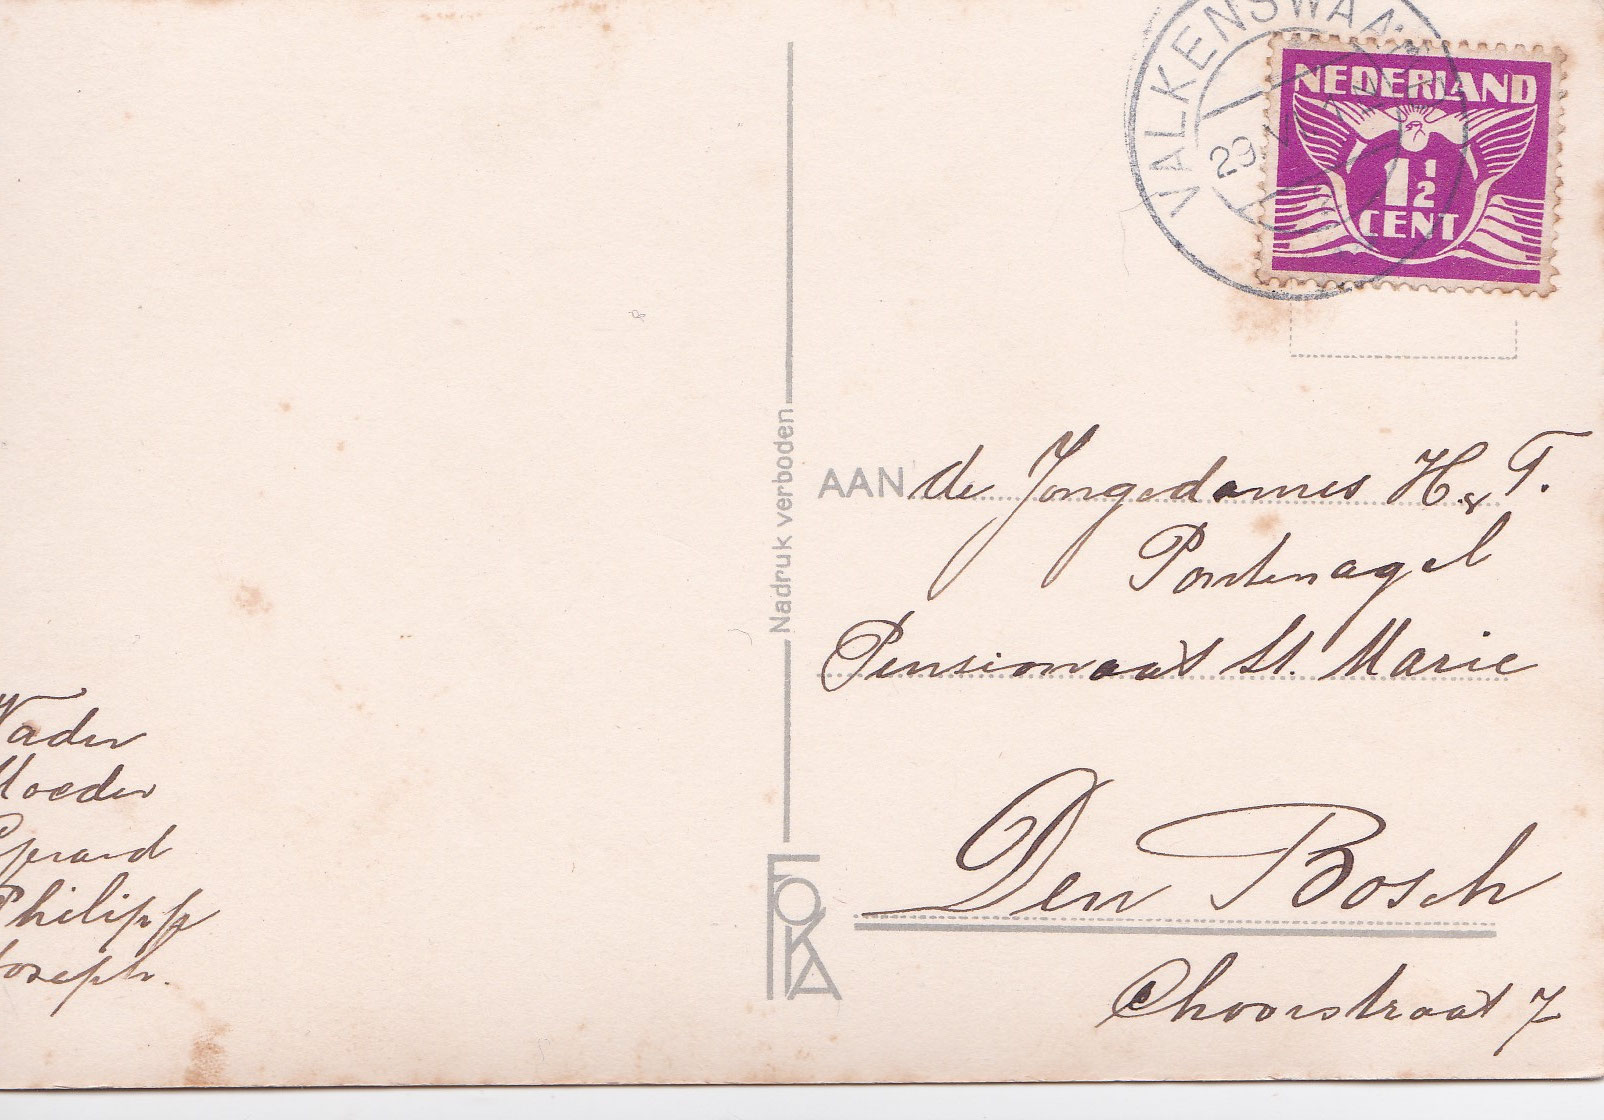 VALKENSWAA
29
NEDERLAND
1 1/2
CENT
Nadruk verboden
AAN de Jongedames H. & T.
Portenagel
Pensionaat St. Marie
Den Bosch
Choorstraat 7
Vader
Moeder
Gerard
Philipp
Joseph.
FOKA